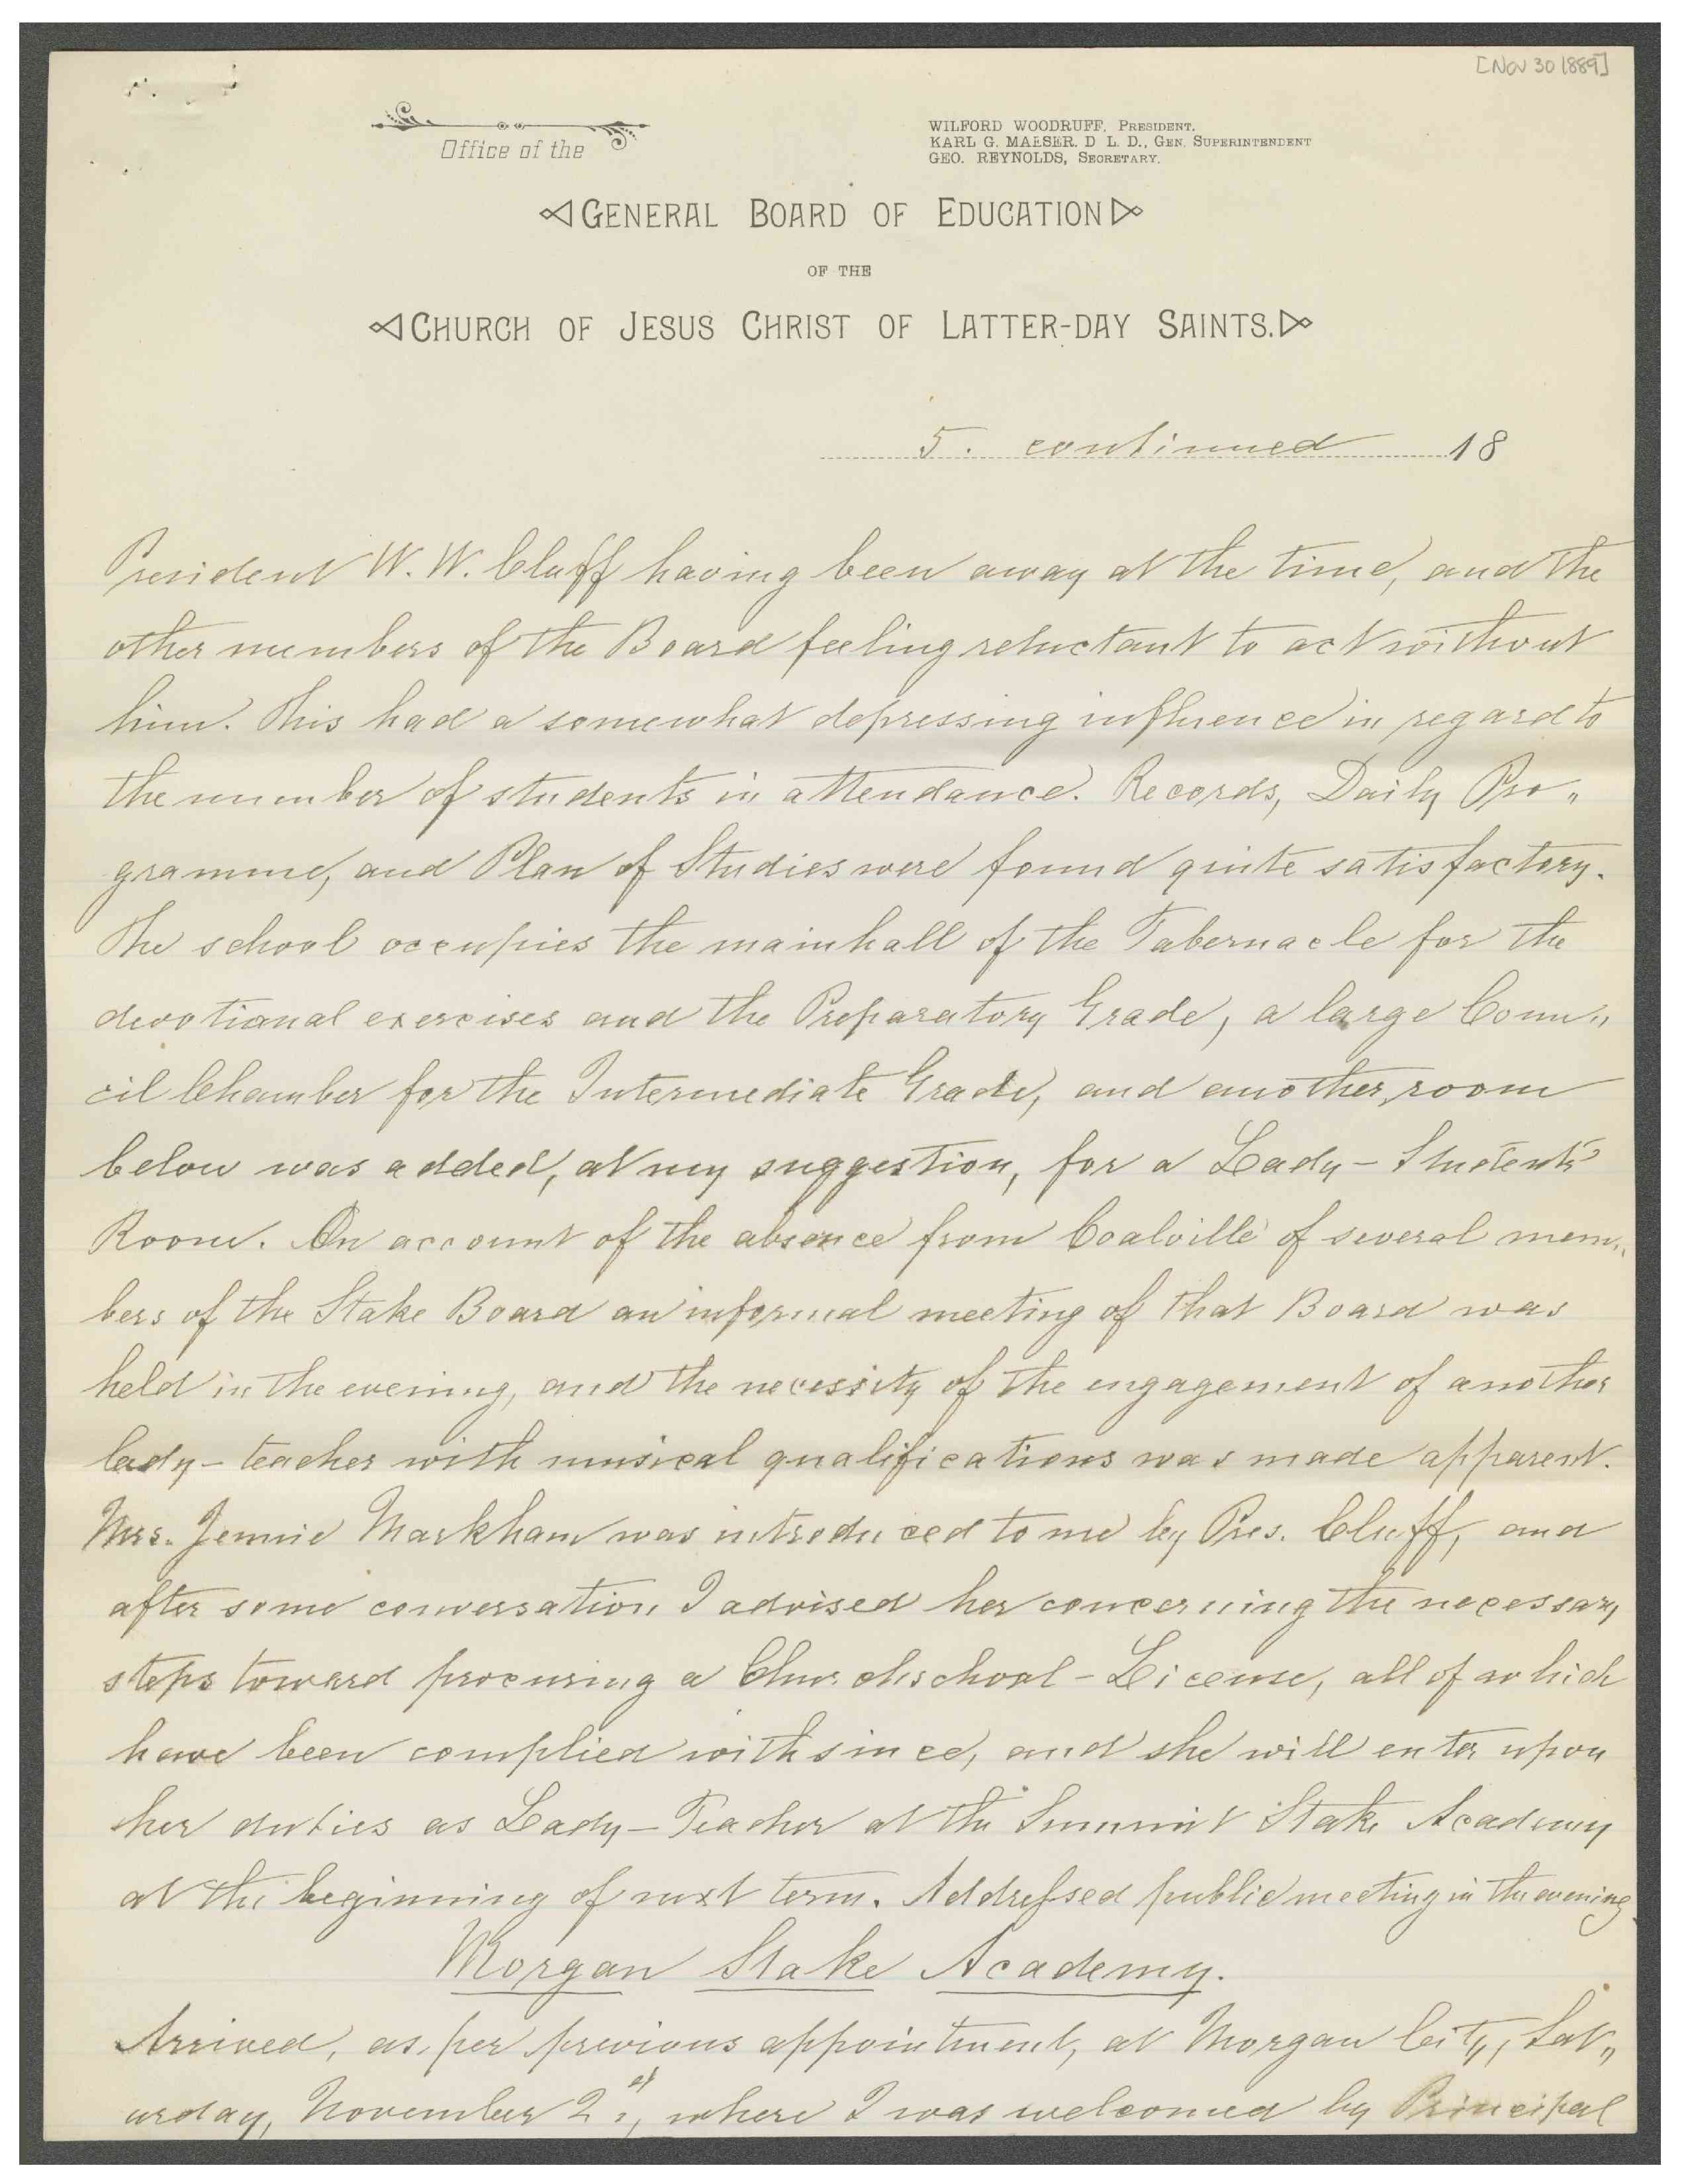 [Nov 30 1889]
Office of the
WILFORD WOODRUFF, PRESIDENT.
KARL G. MAESER. D L. D., GEN. SUPERINTENDENT
GEO. REYNOLDS, SECRETARY.
GENERAL BOARD OF EDUCATION
OF THE
CHURCH OF JESUS CHRIST OF LATTER-DAY SAINTS.
5. continued 18
President W. W. Cluff having been away at the time, and the
other members of the Board feeling reluctant to act without
him. This had a somewhat depressing influence in regard to
the number of students in attendance. Records, Daily Pro„
gramme, and Plan of Studies were found quite satisfactory.
The school occupies the main hall of the Tabernacle for the
devotional exercises and the Preparatory Grade, a large Coun„
cil Chamber for the Intermediate Grade, and another room
below was added, at my suggestion, for a Lady-Students'
Room. On account of the absence from Coalville of several mem„
bers of the Stake Board an informal meeting of that Board was
held in the evening, and the necessity of the engagement of another
lady-teacher with musical qualifications was made apparent.
Mrs. Jennie Markham was introduced to me by Pres. Cluff, and
after some conversation I advised her concerning the necessary
steps toward procuring a Churchschool-License, all of which
have been complied with since, and she will enter upon
her duties as Lady-Teacher at the Summit Stake Academy
at the beginning of next term. Addressed public meeting in the evening.
Morgan Stake Academy.
Arrived, as per previous appointment, at Morgan City, Sat„
urday, November 2d, where I was welcomed by Principal